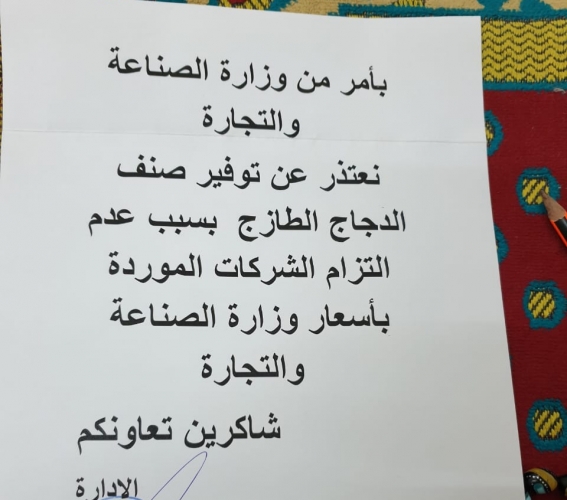 بأمر من وزارة الصناعة
والتجارة
نعتذر عن توفير صنف
الدجاج الطازج بسبب عدم
التزام الشركات الموردة
بأسعار وزارة الصناعة
والتجارة
شاكرين تعاونكم
الادارة